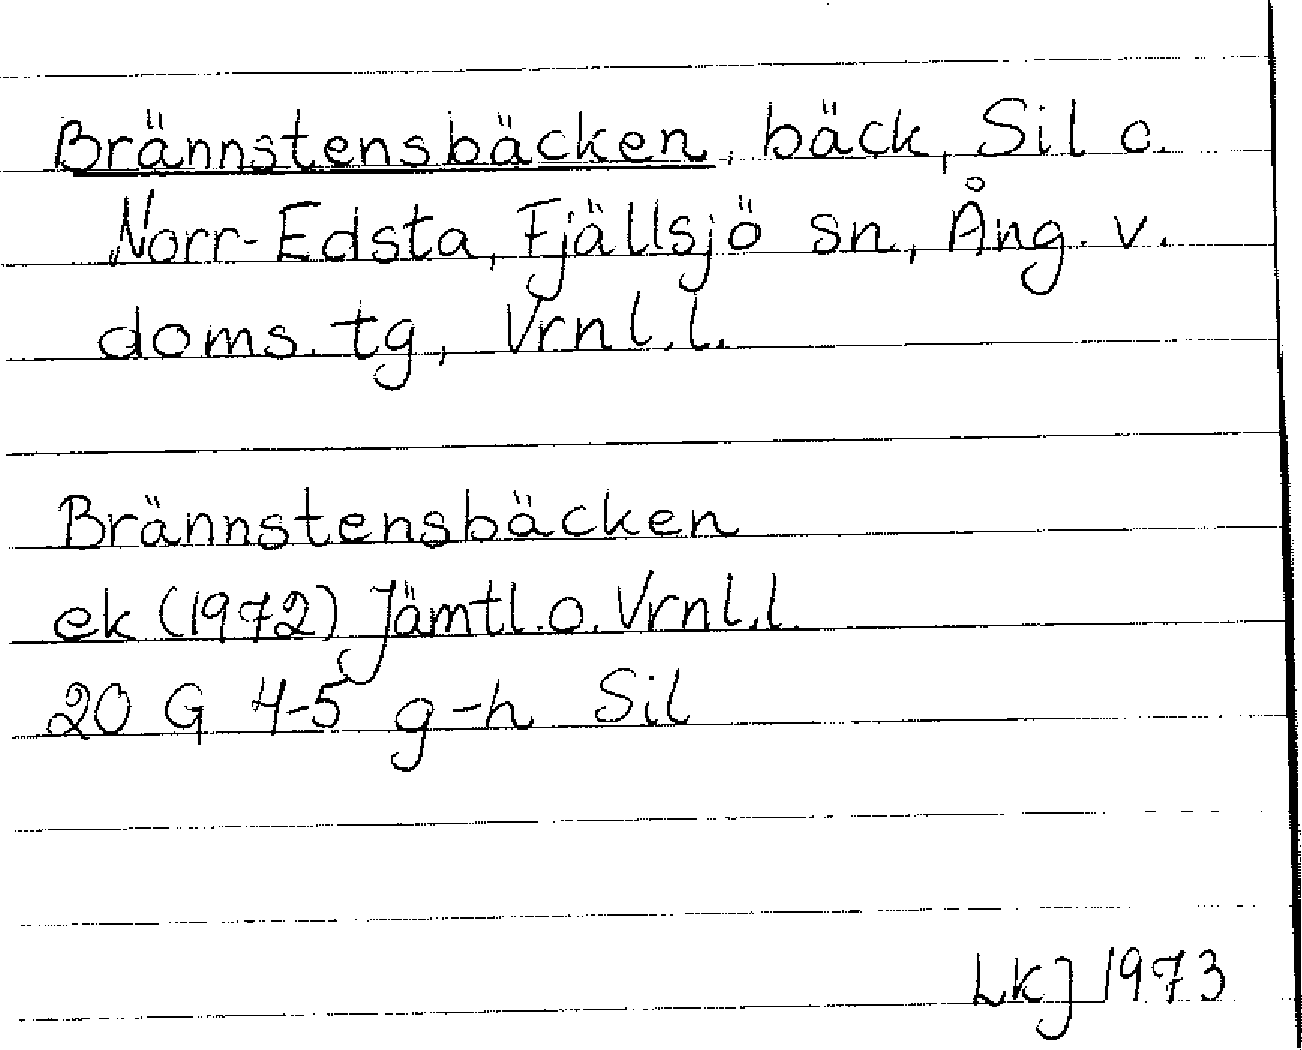 Brännstensbäcken, bäck, Sil o.
Norr-Edsta, Fjällsjö sn, Ång. v.
doms. tg, Vrnl.l.
Brännstensbäcken
ek (1972) Jämtl.o. Vrnl.l.
20 G 4-5 g-h Sil
LKJ 1973